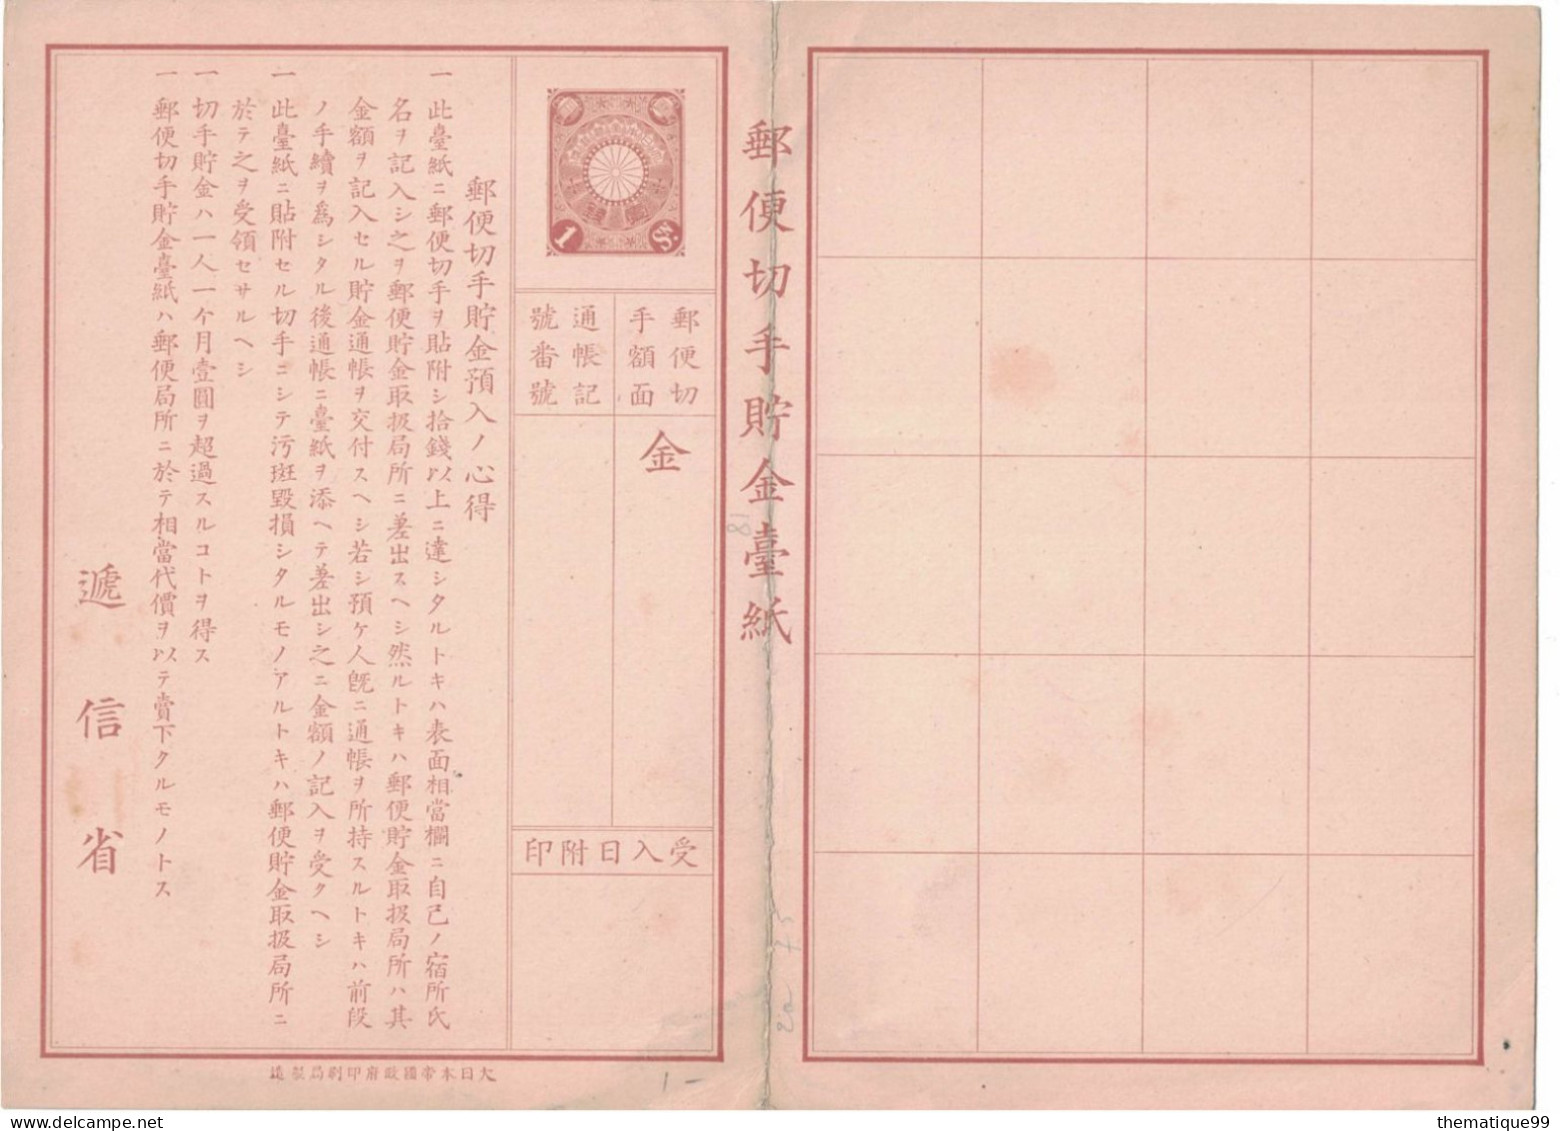 郵便切手貯金臺紙
郵便切
手額面
金
通帳記
號番號
受入日附印
1
Sn.
郵便切手貯金預入ノ心得
一 此臺紙ニ郵便切手ヲ貼附シ拾錢以上ニ達シタルトキハ表面相當欄ニ自己ノ宿所氏
名ヲ記入シ之ヲ郵便貯金取扱局所ニ差出スヘシ然ルトキハ郵便貯金取扱局所ハ其
金額ヲ記入セル貯金通帳ヲ交付スヘシ若シ預ケ人旣ニ通帳ヲ所持スルトキハ前段
ノ手續ヲ爲シタル後通帳ニ臺紙ヲ添ヘテ差出シ之ニ金額ノ記入ヲ受クヘシ
一 此臺紙ニ貼附セル切手ニシテ汚斑毀損シタルモノアルトキハ郵便貯金取扱局所ニ
於テ之ヲ受領セサルヘシ
一 切手貯金ハ一人一个月壹圓ヲ超過スルコトヲ得ス
一 郵便切手貯金臺紙ハ郵便局所ニ於テ相當代價ヲ以テ賣下クルモノトス
遞信省
大日本帝國政府印刷局製造
81
1 -
thematique99